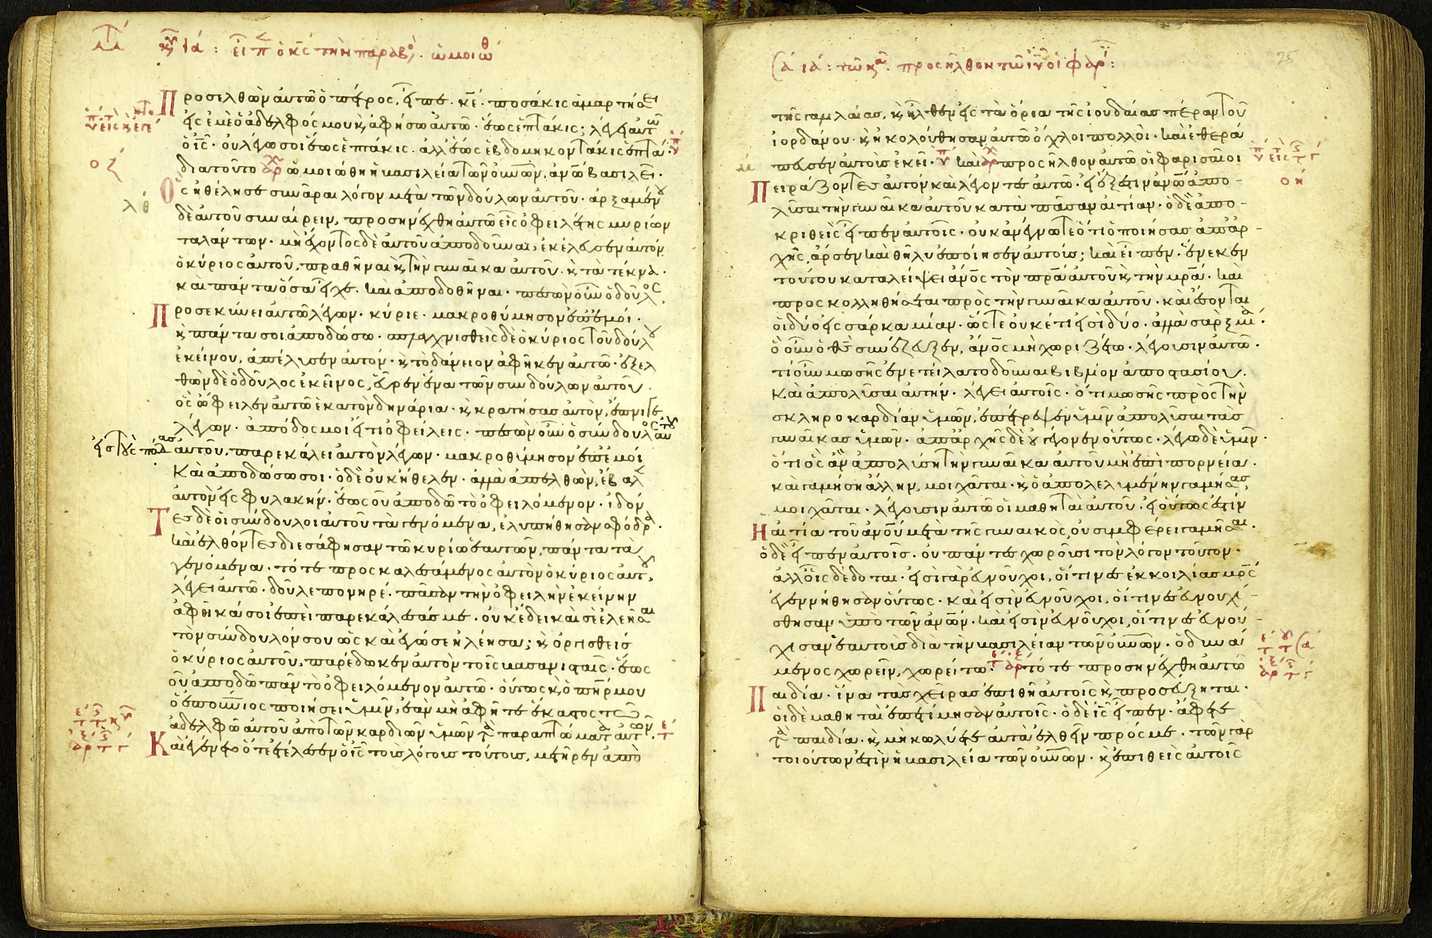 κυ ια : ειπ ο κς την παραβολ · ωμοιωθ
Προσελθὼν αὐτῶ ὁ πέτρος, εἶπε · κε · ποσάκις ἁμαρτήσει
εἰς ἐμὲ ὁ ἀδελφός μου κ ἀφήσω αὐτῶ · ἕως ἑπτάκις; λέγει αὐτῶ
ὁ ις · οὐ λέγω σοι ἕως ἑπτάκις · ἀλλ ἕως ἑβδομηκοντάκις ἑπτά ·
διατοῦτο ὡμοιώθη ἡ βασιλεία τῶν οὐνων, ἀνω βασιλεῖ ·
Ὃς ἠθέλησε συνᾶραι λόγον μετὰ τῶν δούλων αὐτοῦ · ἀρξαμένου
δὲ αὐτοῦ συναίρειν, προσηνέχθη αὐτῶ εἷς ὀφειλέτης μυρίων
ταλάντων · μὴ ἔχοντος δὲ αὐτοῦ ἀποδοῦναι, ἐκέλευσεν αὐτὸν
ὁ κύριος αὐτοῦ, πραθῆναι κ τὴν γυναῖκα αὐτοῦ · κ τὰ τέκνα ·
και πάντα ὅσα εἶχε · καὶ ἀποδοθῆναι · πεσὼν οὖν ὁ δοῦλος
Προσεκύνει αὐτῶ λέγων · κύριε · μακροθύμησον ἐπ ἐμοί ·
κ πάντα σοι ἀποδώσω · σπλαχνισθεὶς δὲ ὁ κύριος τοῦ δούλου
ἐκείνου, ἀπέλυσεν αὐτόν · κ τὸ δάνειον ἀφῆκεν αὐτῶ · ἐξελ
θὼν δὲ ὁ δοῦλος ἐκεῖνος, εὗρεν ἕνα τῶν συνδούλων αὐτοῦ ·
ὃς ὤφειλεν αὐτῶ ἑκατὸν δηνάρια · κ κρατήσας αὐτὸν, ἔπνιγε
λέγων · ἀπόδος μοι εἴ τι ὀφείλεις · πεσὼν οὖν ὁ σύνδουλος αυτου
εἰς τοὺς πόδας αὐτοῦ, παρεκάλει αὐτὸν λέγων · μακροθύμησον ἐπ ἐμοὶ
Καὶ ἀποδώσω σοι · ὁ δὲ οὐκ ἤθελεν · ἀλλὰ ἀπελθὼν, ἔβαλ
αὐτὸν εἰς φυλακήν · ἕως οὗ ἀποδῶ τὸ ὀφειλόμενον · ἰδόν
Τες δὲ οἱ σύνδουλοι αὐτοῦ τὰ γενόμενα, ἐλυπήθησαν σφόδρα ·
καὶ ἐλθόντες διεσάφησαν τῶ κυρίω ἑαυτῶν, πάντα τὰ
γενόμενα · τότε προσκαλεσάμενος αὐτὸν ὁ κύριος αὐτοῦ,
λέγει αὐτῶ · δοῦλε πονηρέ · πᾶσαν τὴν ὀφειλὴν ἐκείνην
ἀφῆκά σοι ἐπεὶ παρεκάλεσάς με · οὐκ ἔδει καὶ σὲ ἐλεῆσαι
τὸν σύνδουλόν σου ὡς καὶ ἐγώ σε ἠλέησα; κ ὀργισθεὶς
ὁ κύριος αὐτοῦ, παρέδωκεν αὐτὸν τοῖς βασανισταῖς · ἕως
οὗ ἀποδῶ πᾶν τὸ ὀφειλόμενον αὐτῶ · οὕτως κ ὁ πηρ μου
ὁ ἐπουράνιος ποιήσει ὑμῖν, ἐὰν μὴ ἀφῆτε ἕκαστος τῶ
ἀδελφῶ αὐτοῦ ἀπὸ τῶν καρδιῶν ὑμῶν τὰ παραπτώματα αὐτῶν ·
Καὶ ἐγένετο ὅτε ἐτέλεσεν ὁ ις τοὺς λόγους τούτους, μετῆρεν ἀπὸ
λθ
προσῆλθον τῶ ιυ οἱ φαρ :
25
τῆς γαλιλαίας, κ ἦλθεν εἰς τὰ ὅρια τῆς ἰουδαίας πέραν τοῦ
ἰορδάνου · κ ἠκολούθησαν αὐτῶ ὄχλοι πολλοί · καὶ ἐθερά
πευσεν αὐτοὺς ἐκεῖ · καὶ προσῆλθον αὐτῶ οἱ φαρισαῖοι
Πειράζοντες αὐτὸν καὶ λέγοντες αὐτῶ · εἰ ἔξεστιν ἀνω ἀπο-
λῦσαι τὴν γυναῖκα αὐτοῦ κατὰ πᾶσαν αἰτίαν · ὁ δὲ ἀπο-
κριθεὶς εἶπεν αὐτοῖς · οὐκ ἀνέγνωτε ὅτι ὁ ποιήσας ἀπ ἀρ-
χῆς, ἄρσεν καὶ θῆλυ ἐποίησεν αὐτούς; καὶ εἶπεν · ἕνεκεν
τούτου καταλείψει ἀνος τὸν πρα αὐτοῦ κ τὴν μρα · καὶ
προσκολληθήσεται πρὸς τὴν γυναῖκα αὐτοῦ · καὶ ἔσονται
οἱ δύο εἰς σάρκα μίαν · ὥστε οὐκέτι εἰσὶ δύο · ἀλλὰ σὰρξ μία ·
ὃ οὖν ὁ θς συνέζευξεν, ἀνος μὴ χωριζέτω · λέγουσιν αὐτῶ ·
τί οὖν μωσῆς ἐνετείλατο δοῦναι βιβλίον ἀποστασίου ·
Καὶ ἀπολῦσαι αὐτήν · λέγει αὐτοῖς · ὅτι μωσῆς πρὸς τὴν
σκληροκαρδίαν ὑμῶν, ἐπέτρεψεν ὑμῖν ἀπολῦσαι τὰς
γυναῖκας ὑμῶν · ἀπ ἀρχῆς δὲ οὐ γέγονεν οὕτως · λέγω δὲ ὑμῖν ·
ὅτι ὃς ἂν ἀπολύση τὴν γυναῖκα αὐτοῦ μὴ ἐπὶ πορνεία ·
καὶ γαμήση ἄλλην, μοιχᾶται · κ ὁ ἀπολελυμένην γαμήσας
μοιχᾶται · λέγουσιν αὐτῶ οἱ μαθηταὶ αὐτοῦ · εἰ οὕτως ἐστὶν
Η αἰτία τοῦ ἀνου μετὰ τῆς γυναικός, οὐ συμφέρει γαμῆσαι ·
ὁ δὲ εἶπεν αὐτοῖς · οὐ πάντες χωροῦσι τὸν λόγον τοῦτον ·
ἀλλ οἷς δέδοται · εἰσὶ γὰρ εὐνοῦχοι, οἵτινες ἐκ κοιλίας μρς
ἐγεννήθησαν οὕτως · καὶ εἰσὶν εὐνοῦχοι, οἵτινες εὐνουχί-
σθησαν ὑπὸ τῶν ἀνων · καὶ εἰσὶν εὐνοῦχοι, οἵτινες εὐνού-
χισαν ἑαυτοὺς διὰ τὴν βασιλείαν τῶν οὐνων · ὁ δυνά
μενος χωρεῖν, χωρείτω · τότε προσηνέχθη αὐτῶ
Παιδία · ἵνα τὰς χεῖρας ἐπιθῆ αὐτοῖς κ προσεύξηται ·
οἱ δὲ μαθηταὶ ἐπετίμησαν αὐτοῖς · ὁ δὲ ις εἶπεν · ἄφετε
τὰ παιδία · κ μὴ κωλύετε αὐτὰ ἐλθεῖν πρός με · τῶν γὰρ
τοιούτων ἐστὶν ἡ βασιλεία τῶν οὐνων · κ ἐπιθεὶς αὐτοῖς